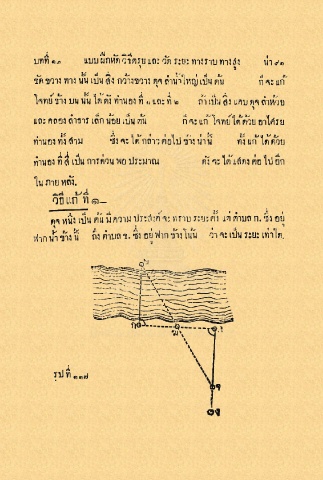 บทที่ ๑๓ แบบฝึกหัด วิธีตรุย แล วัด ระยะ ทางราบ ทางสูง น่า ๙๑
ขัด ขวาง ทาง นั้น เป็น สิ่ง กว้างขวาง ดุจ ลำน้ำใหญ่ เป็น ต้น ก็ จะ แก้
โจทย์ ข้าง บน นั้น ได้ ดัง ทำนอง ที่ ๑ และ ที่ ๒ ถ้า เป็น สิ่ง แคบ ดุจ ลำห้วย
แล คลอง ลำธาร เล็ก น้อย เป็น ต้น ก็ จะ แก้ โจทย์ ได้ ด้วย อาไศรย
ทำนอง ทั้ง สาม ซึ่ง จะ ได้ กล่าว ต่อ ไป ข้าง น่า นี้ ทั้ง แก้ ได้ ด้วย
ทำนอง ที่ สี่ เป็น การ ด่วน พอ ประมาณ ดัง จะ ได้ แสดง ต่อ ไป อีก
ใน ภาย หลัง.
วิธี แก้ ที่ ๑—
ดุจ หนึ่ง เป็น ต้น มี ความ ประสงค์ จะ ทราบ ระยะ ตั้ง แต่ ตำบล ก. ซึ่ง อยู่
ฟาก น้ำ ข้าง นี้ ถึง ตำบล ข. ซึ่ง อยู่ ฟาก ข้าง โน้น ว่า จะ เป็น ระยะ เท่าใด.
ข
ก
รูป ที่ ๑๑๗
จ
ง